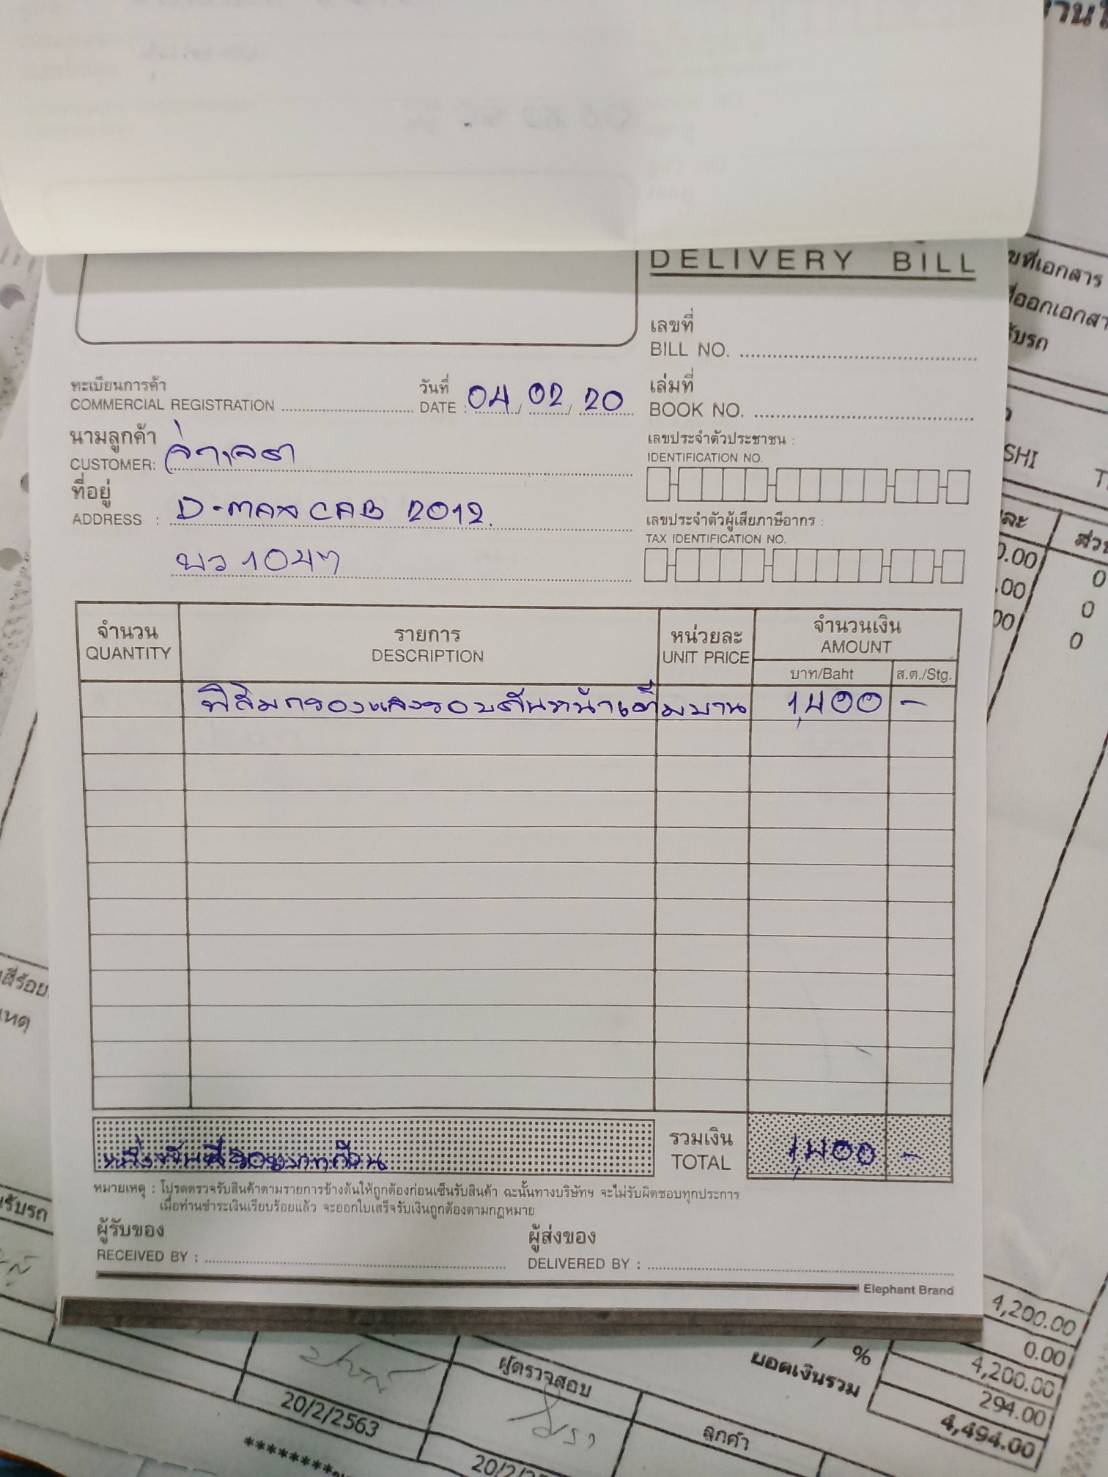 DELIVERY BILL
เลขที่
BILL NO.
ทะเบียนการค้า
COMMERCIAL REGISTRATION
วันที่
DATE : 04, 02, 20
เล่มที่
BOOK NO.
นามลูกค้า
CUSTOMER:
เลขประจำตัวประชาชน :
IDENTIFICATION NO.
ที่อยู่
ADDRESS : D-max CAB 2012.
เลขประจำตัวผู้เสียภาษีอากร :
TAX IDENTIFICATION NO.
จำนวน
QUANTITY
รายการ
DESCRIPTION
หน่วยละ
UNIT PRICE
จำนวนเงิน
AMOUNT
บาท/Baht
ส.ต./Stg.
ฟิล์มกรองแสงรอบคันหน้าเต็มบาน 1,400 -
หนึ่งพันสี่ร้อยบาทถ้วน
รวมเงิน
TOTAL
1,400 -
หมายเหตุ : โปรดตรวจรับสินค้าตามรายการข้างต้นให้ถูกต้องก่อนเซ็นรับสินค้า ฉะนั้นทางบริษัทฯ จะไม่รับผิดชอบทุกประการ
เมื่อท่านชำระเงินเรียบร้อยแล้ว จะออกใบเสร็จรับเงินถูกต้องตามกฎหมาย
ผู้รับของ
RECEIVED BY :
ผู้ส่งของ
DELIVERED BY :
Elephant Brand
4,200.00
0.00
% 4,200.00
294.00
ยอดเงินรวม 4,494.00
ผู้ตรวจสอบ
ลูกค้า
20/2/2563